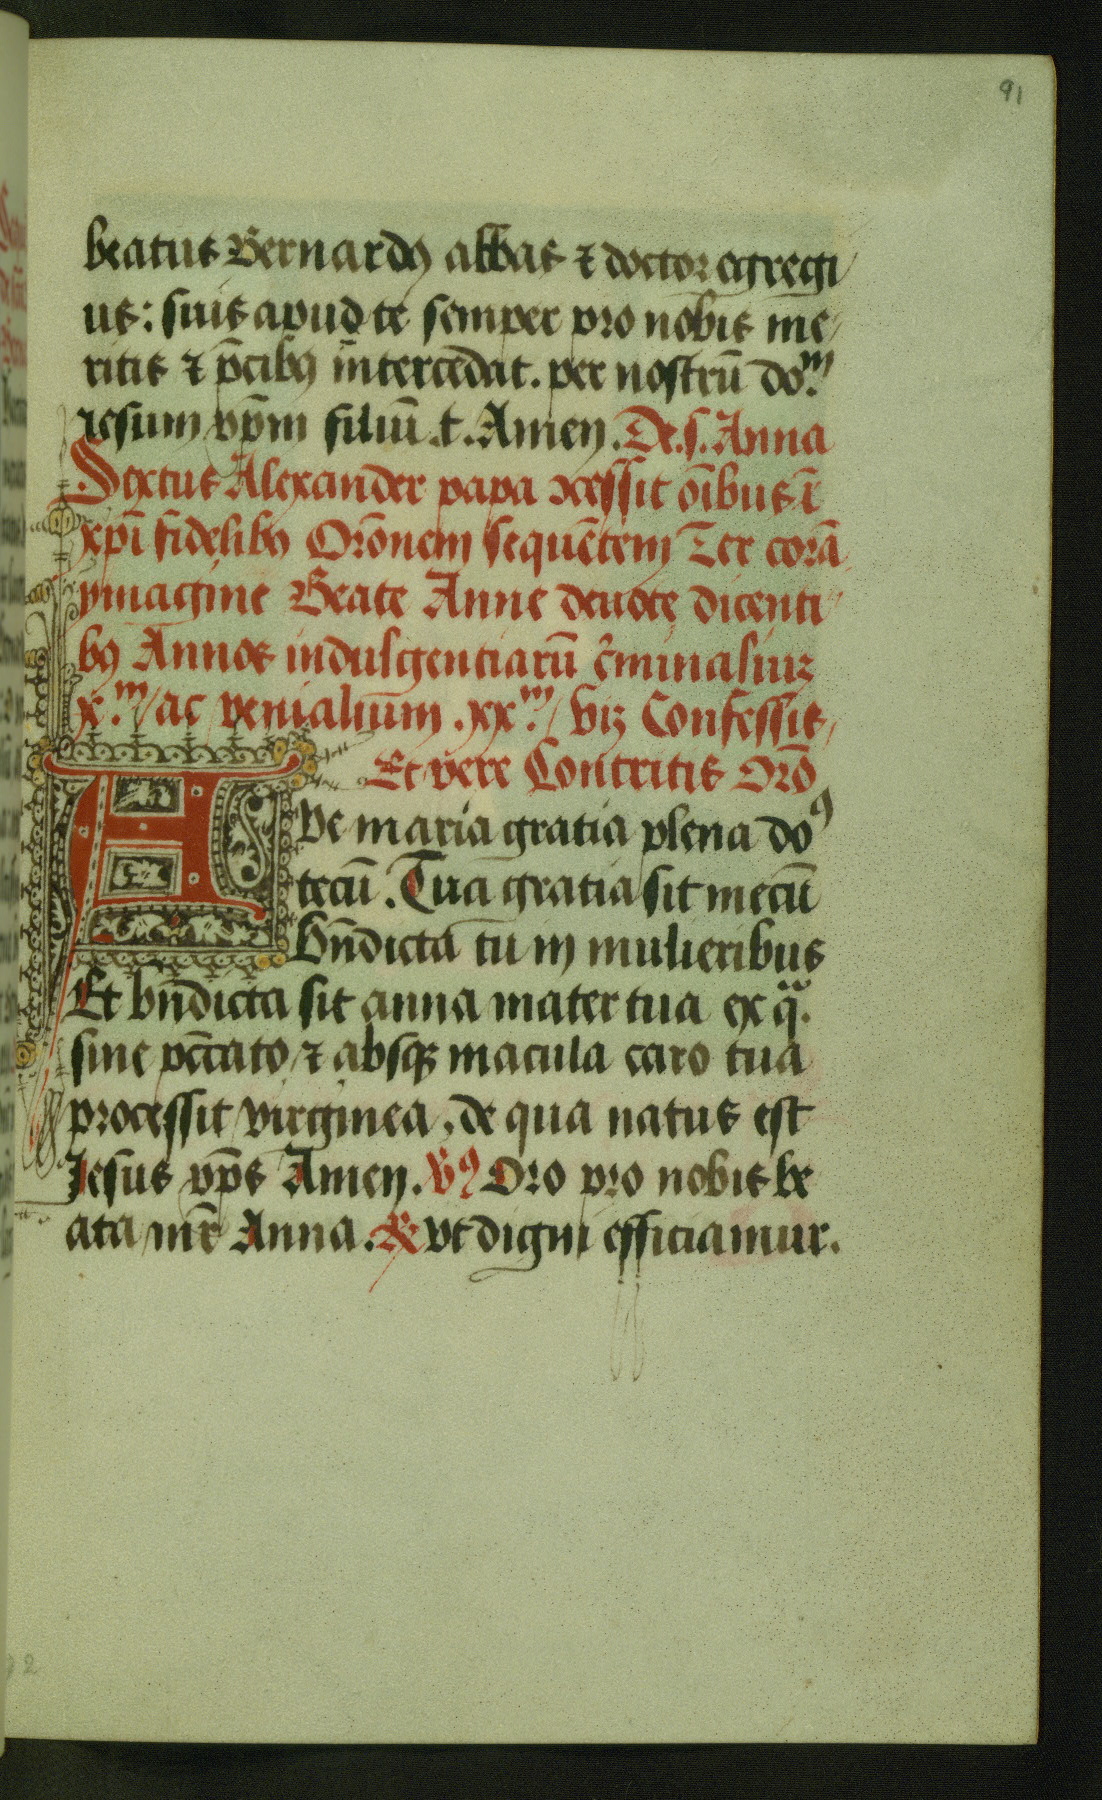 91
beatus Bernardꝰ abbas ⁊ doctor egregi/
us: suis apud te semper pro nobis me/
ritis ⁊ p̄cibꝰ intercedat. per nostrū doᵐ.
iesum xp̄m filiū .t. Amen. De .s. Anna
Sextus Alexander papa ↄcessit oībus ī
xpī fidelibꝰ Orōnem sequētem Ter corā
ymagine Beate Anne deuote dicenti/
bꝰ Annos indulgentiarū c̄minaliuꝫ
x.ᵐ/ ac venialium .xx.ᵐ/ viꝫ Confessis/
Et vere Contritis Orō
AVe maria gratia plena doꝰ
tecū. Tua gratia sit mecū
Bn̄dicta tu in mulieribus
Et bn̄dicta sit anna mater tua ex qᵃ.
sine pēccato/ ⁊ absqꝫ macula caro tua
processit virginea, de qua natus est
Jesus xp̄s Amen. Vꝰ Oro pro nobis be
ata mr̄ Anna. ℟ vt digni efficiamur.
2